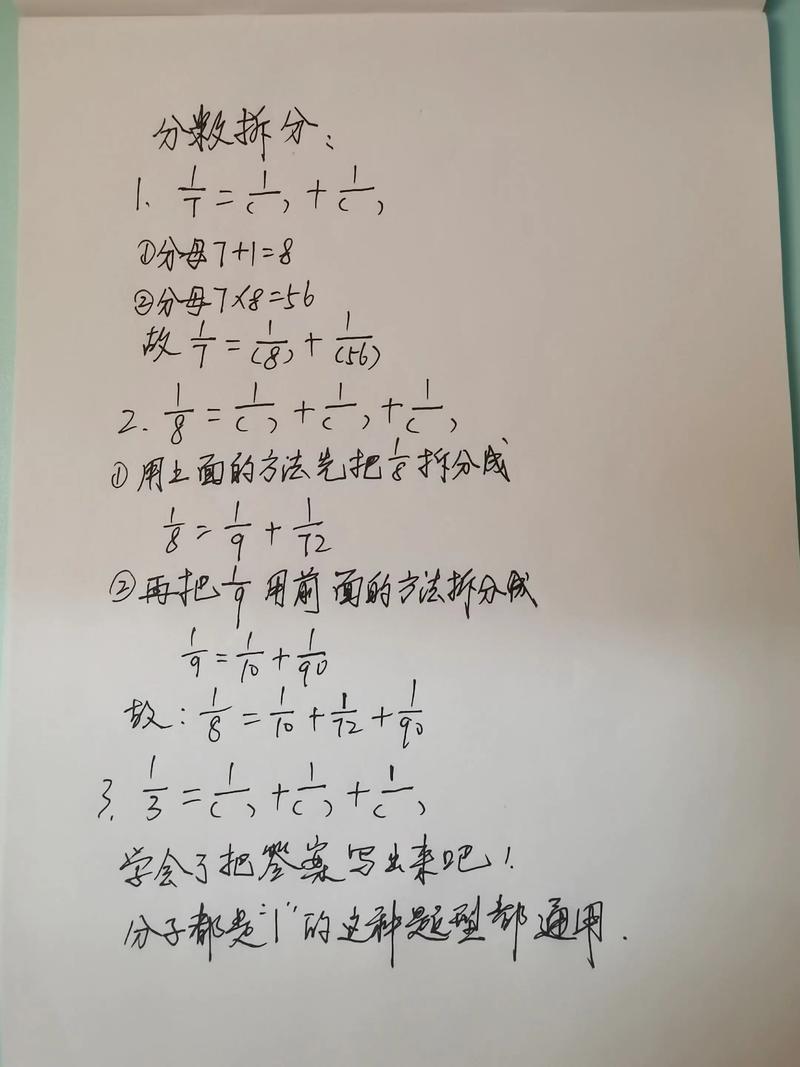 分数拆分:
1. 1/7 = 1/( ) + 1/( )
①分母7+1=8
②分母7×8=56
故 1/7 = 1/(8) + 1/(56)
2. 1/8 = 1/( ) + 1/( ) + 1/( )
①用上面的方法先把1/8拆分成
1/8 = 1/9 + 1/72
②再把1/9用前面的方法拆分成
1/9 = 1/10 + 1/90
故: 1/8 = 1/10 + 1/72 + 1/90
3. 1/3 = 1/( ) + 1/( ) + 1/( )
学会了把答案写出来吧!
分子都是"1"的这种题型都通用.